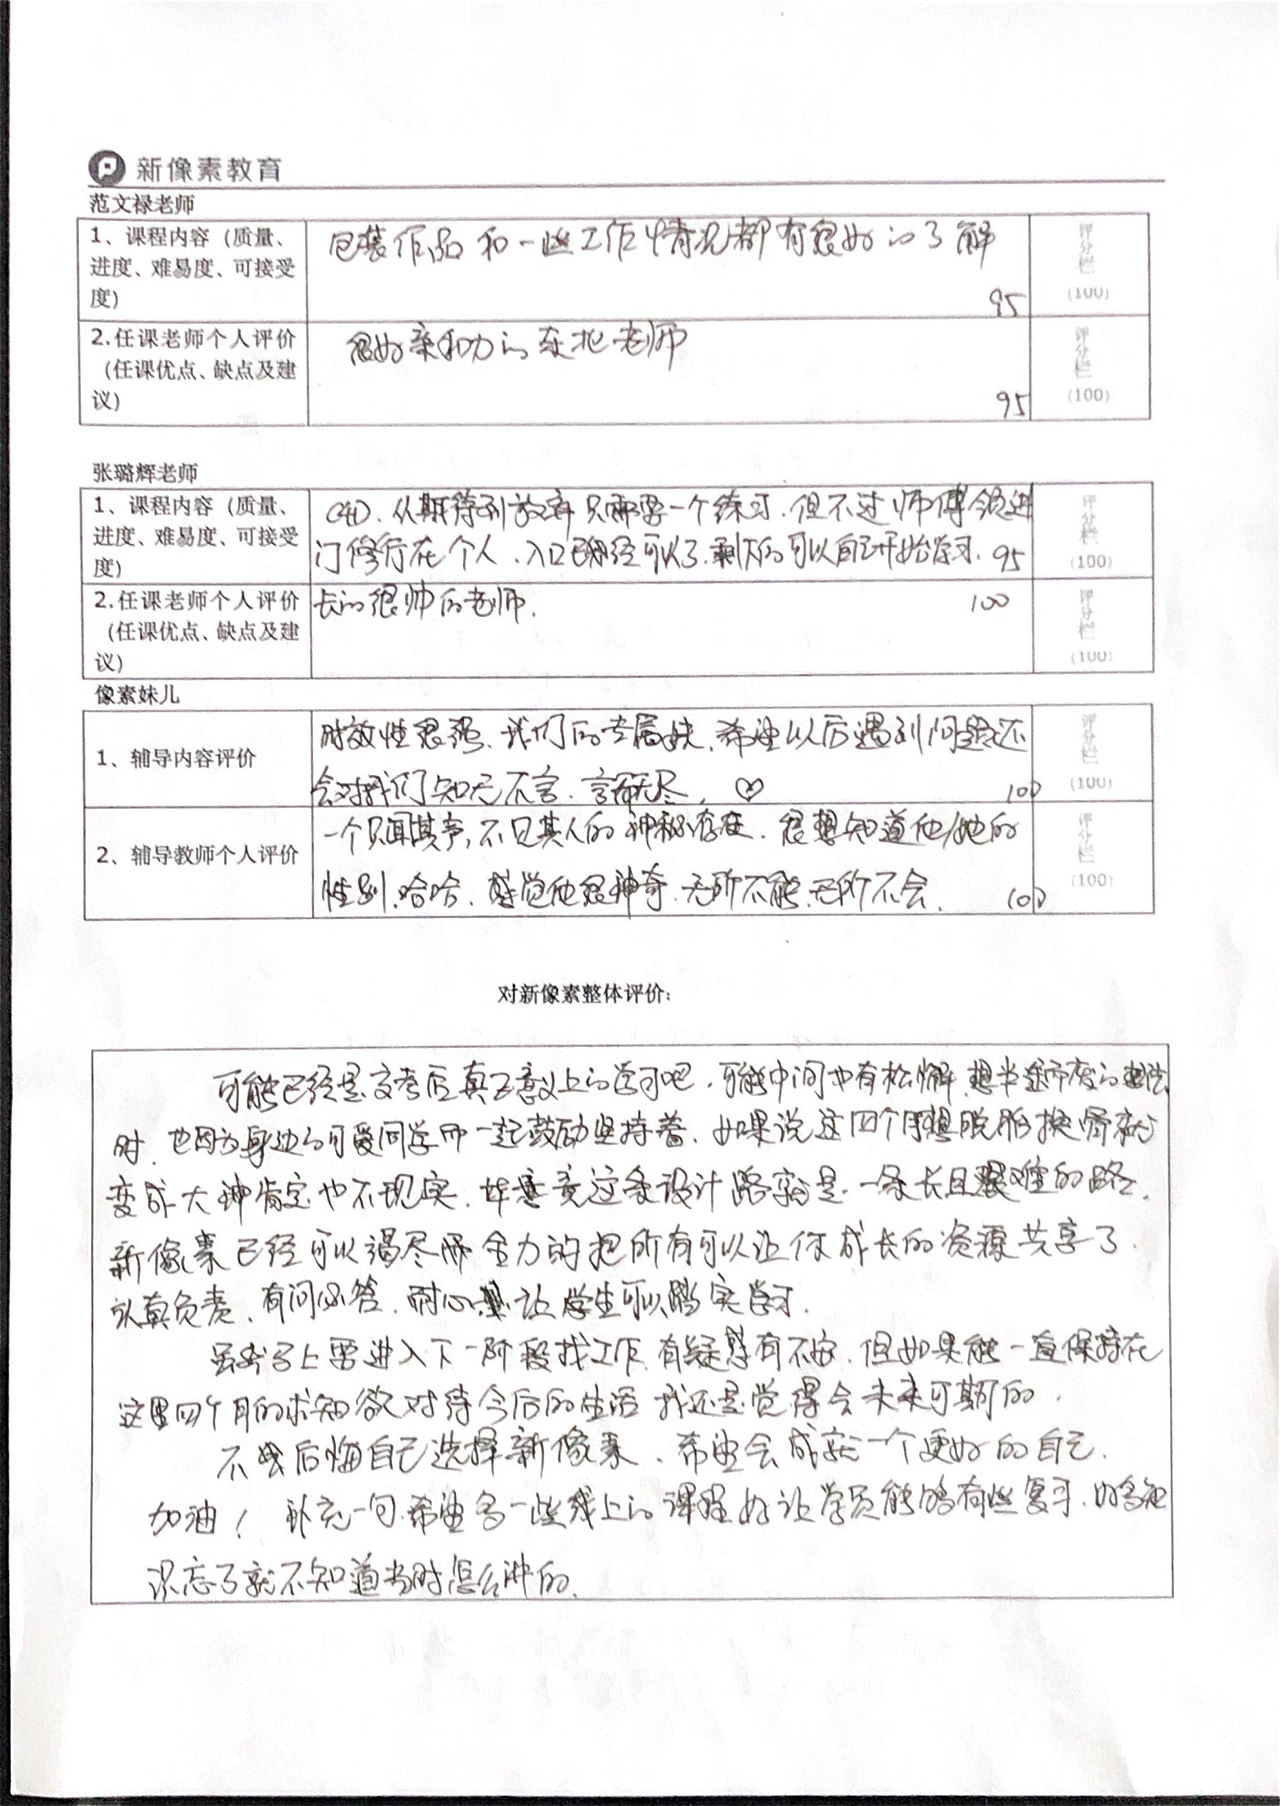 新像素教育
范文禄老师
1、课程内容（质量、
进度、难易度、可接受
度）
包装作品和一些工作情况都有很好的了解
95
评分栏
(100)
2.任课老师个人评价
（任课优点、缺点及建
议）
很好亲和力的东北老师
95
评分栏
(100)
张璐辉老师
1、课程内容（质量、
进度、难易度、可接受
度）
C4D、从期待到放弃只需要一个练习.但不过师傅领进
门修行在个人、入口已经可以了.剩下的可以自己开始学习. 95
评分栏
(100)
2.任课老师个人评价
（任课优点、缺点及建
议）
长的很帅的老师. 100
评分栏
(100)
像素妹儿
1、辅导内容评价
时效性很强、我们的专属妹、希望以后遇到问题还
会对我们知无不言.言无尽, ♡ 100
评分栏
(100)
2、辅导教师个人评价
一个只闻其声,不见其人的神秘存在.很想知道他/她的
性别.哈哈.感觉他很神奇.无所不能.无所不会. 100
评分栏
(100)
对新像素整体评价：
可能已经是高考后真正意义上的学习吧.可能中间也有松懈.想半途而废的想法
时.也因为身边的可爱同学而一起鼓励坚持着.如果说这四个月想脱胎换骨就
变成大神肯定也不现实.毕竟这条设计路就是一条长且艰难的路.
新像素已经可以竭尽全力的把所有可以让你成长的资源共享了.
认真负责.有问必答.耐心.让学生可以踏实学习.
虽然马上要进入下一阶段找工作.有疑惑有不安.但如果能一直保持在
这里四个月的求知欲对待今后的生活我还是觉得会未来可期的.
不后悔自己选择新像素、希望会成就一个更好的自己.
加油！补充一句.希望多一些线上的课程好让学员能够有些复习.好多知
识忘了就不知道当时怎么讲的.